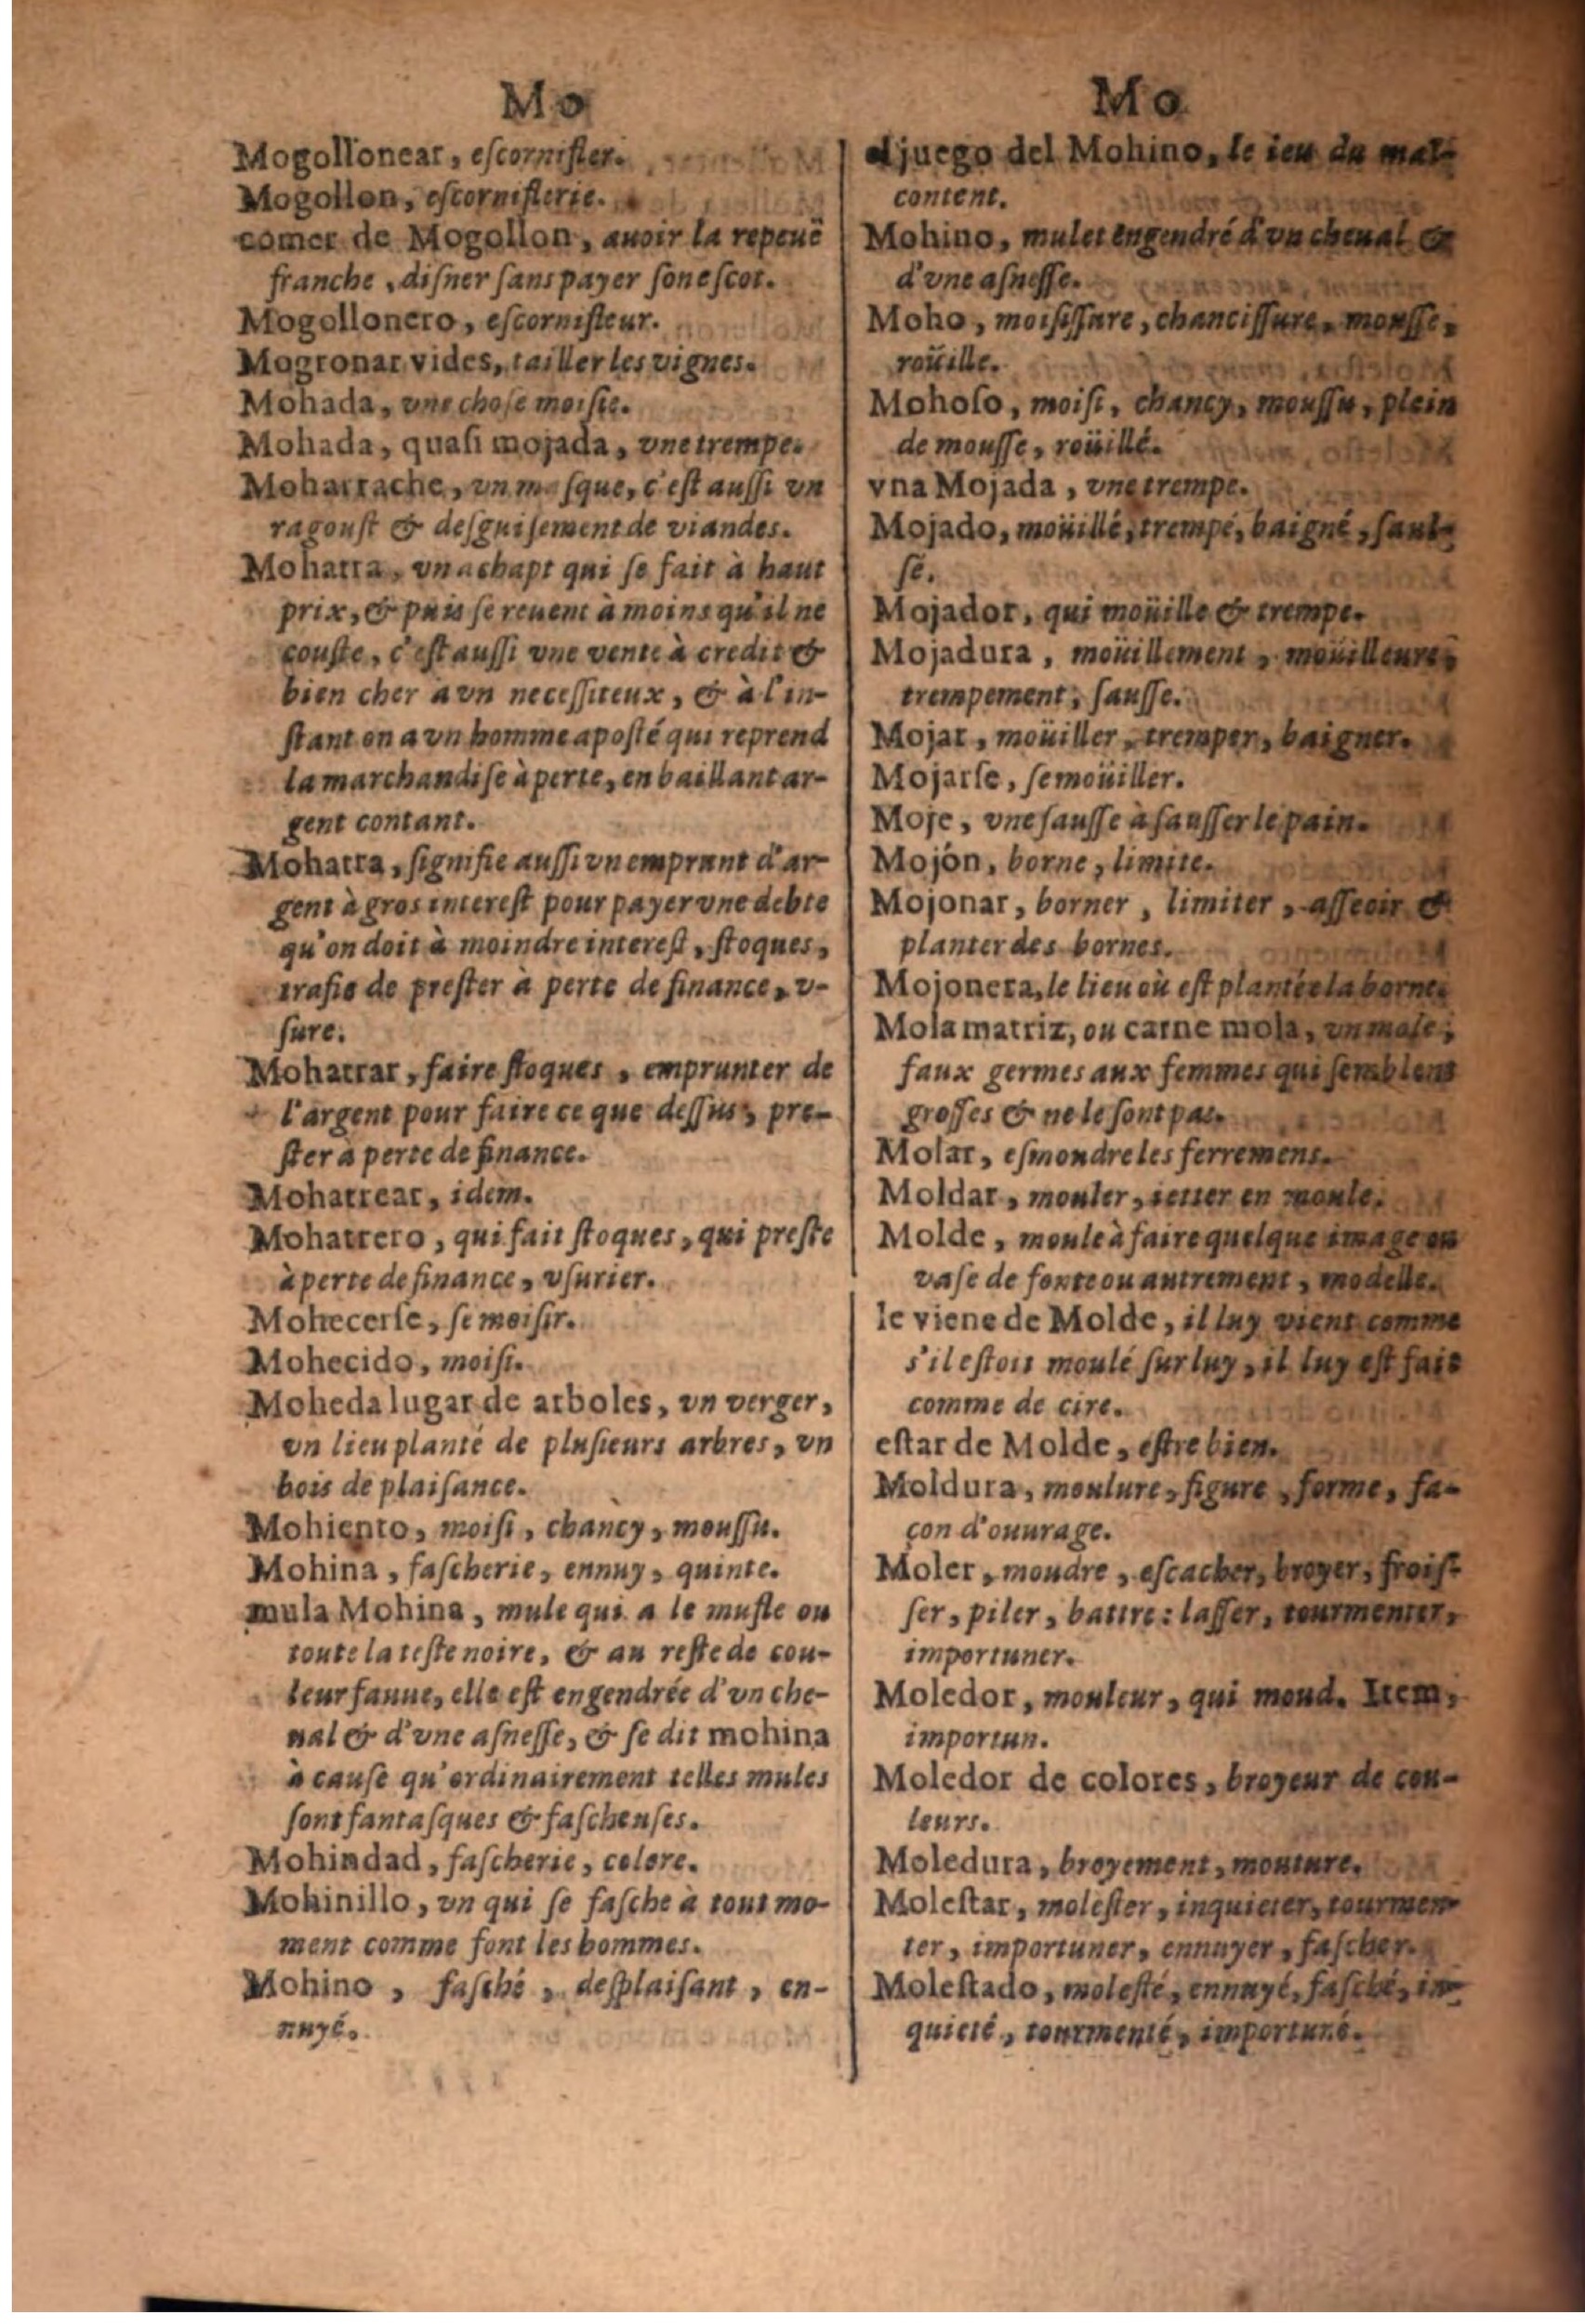 Mo
Mogollonear, eſcornifler.
Mogollon, eſcorniflerie.
comer de Mogollon, auoir la repeuë
franche, diſner ſans payer ſon eſcot.
Mogollonero, eſcornifleur.
Mogronar vides, tailler les vignes.
Mohada, vne choſe moiſie.
Mohada, quaſi mojada, vne trempe.
Moharrache, vn maſque, c'eſt auſſi vn
ragouſt & deſguiſement de viandes.
Mohatra, vn achapt qui ſe fait à haut
prix, & puis ſe reuent à moins qu'il ne
couſte, c'eſt auſſi vne vente à credit &
bien cher à vn neceſſiteux, & à l'in-
ſtant on a vn homme apoſté qui reprend
la marchandiſe à perte, en baillant ar-
gent contant.
Mohatra, ſignifie auſſi vn emprunt d'ar-
gent à gros intereſt pour payer vne debte
qu'on doit à moindre intereſt, ſtoques,
trafic de preſter à perte de finance, v-
ſure.
Mohatrar, faire ſtoques, emprunter de
l'argent pour faire ce que deſſus, pre-
ſter à perte de finance.
Mohatrear, idem.
Mohatrero, qui fait ſtoques, qui preſte
à perte de finance, vſurier.
Mohecerſe, ſe moiſir.
Mohecido, moiſi.
Moheda lugar de arboles, vn verger,
vn lieu planté de pluſieurs arbres, vn
bois de plaiſance.
Mohiento, moiſi, chancy, mouſſu.
Mohina, faſcherie, ennuy, quinte.
mula Mohina, mule qui a le mufle ou
toute la teſte noire, & au reſte de cou-
leur fauue, elle eſt engendrée d'vn che-
ual & d'vne aſneſſe, & ſe dit mohina
à cauſe qu'ordinairement telles mules
ſont fantaſques & faſcheuſes.
Mohindad, faſcherie, colere.
Mohinillo, vn qui ſe faſche à tout mo-
ment comme font les bommes.
Mohino, faſché, deſplaiſant, en-
nuyé.
Mo
el juego del Mohino, le ieu du mal-
content.
Mohino, mulet engendré d'vn cheual &
d'vne aſneſſe.
Moho, moiſiſſure, chanciſſure, mouſſe,
roüille.
Mohoſo, moiſi, chancy, mouſſu, plein
de mouſſe, roüillé.
vna Mojada, vne trempe.
Mojado, moüillé, trempé, baigné, ſaul-
ſé.
Mojador, qui moüille & trempe.
Mojadura, moüillement, moüilleure,
trempement, ſauſſe.
Mojar, moüiller, tremper, baigner.
Mojarſe, ſe moüiller.
Moje, vne ſauſſe à ſauſſer le pain.
Mojón, borne, limite.
Mojonar, borner, limiter, aſſeoir &
planter des bornes.
Mojonera, le lieu où eſt plantée la borne.
Mola matriz, ou carne mola, vn mole,
faux germes aux femmes qui ſemblent
groſſes & ne le ſont pas.
Molar, eſmondre les ferremens.
Moldar, mouler, ietter en moule.
Molde, moule à faire quelque image ou
vaſe de fonte ou autrement, modelle.
le viene de Molde, il luy vient comme
s'il eſtoit moulé ſur luy, il luy eſt fait
comme de cire.
eſtar de Molde, eſtre bien.
Moldura, moulure, figure, forme, fa-
çon d'ouurage.
Moler, moudre, eſcacher, broyer, froiſ-
ſer, piler, battre: laſſer, tourmenter,
importuner.
Moledor, mouleur, qui moud. Item,
importun.
Moledor de colores, broyeur de cou-
leurs.
Moledura, broyement, mouture.
Moleſtar, moleſter, inquieter, tourmen-
ter, importuner, ennuyer, faſcher.
Moleſtado, moleſté, ennuyé, faſché, in-
quieté, tourmenté, importuné.